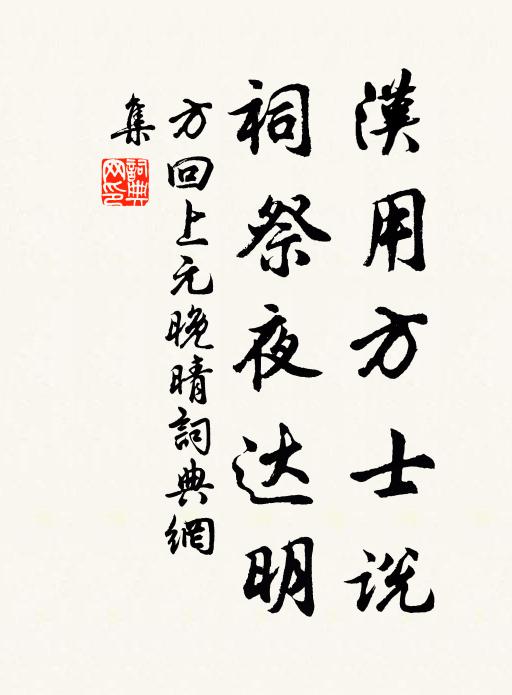 漢用方士说
祠祭夜达明
方回上元晚晴詞典網
集
詞典网印